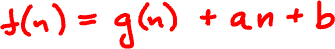 f(n) = g(n) + an + b